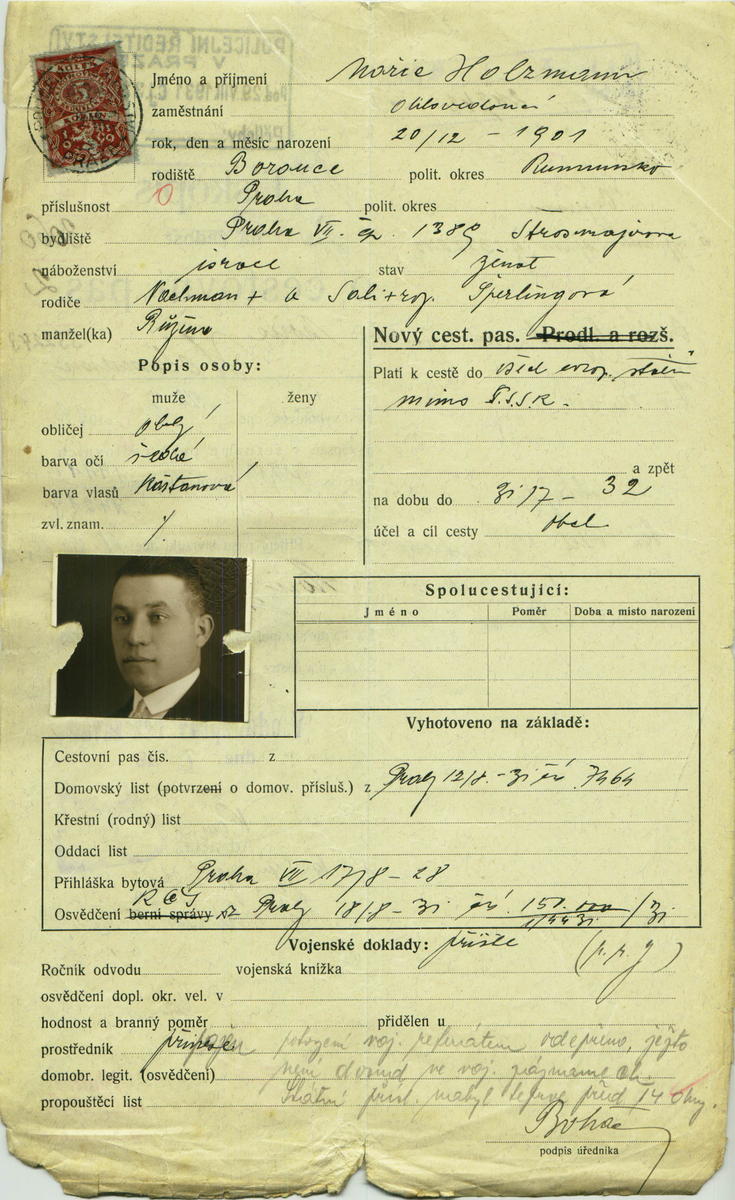 POLICEJNÍ ŘEDITELSTVÍ
V PRAZE
Jméno a příjmení Mořic Holzmann
zaměstnání
rok, den a měsíc narození 20/12 - 1901
rodiště polit. okres Rumunsko
příslušnost Praha polit. okres
bydliště Praha VII. čp. 1389 Strosmajerova
náboženství israel stav ženat
rodiče Nachman + a Sali + roz. Šperlingová
manžel(ka) Růžena
Nový cest. pas. Prodl. a rozš.
Popis osoby:
Platí k cestě do všech evrop. států
muže ženy
mimo S.S.S.R.
obličej oblý
barva očí šedé
a zpět
barva vlasů kaštanová
na dobu do 31/7 - 32
zvl. znam. /.
účel a cíl cesty obch.
Spolucestující:
Jméno Poměr Doba a místo narození
Vyhotoveno na základě:
Cestovní pas čís. z
Domovský list (potvrzení o domov. přísluš.) z Prahy 12/8 - 31 čís. 7464
Křestní (rodný) list
Oddací list
Přihláška bytová Praha VII 17/8 - 28
Osvědčení berní správy z Prahy 18/8 - 31 čís. /31
Vojenské doklady: příště
Ročník odvodu vojenská knížka
osvědčení dopl. okr. vel. v
hodnost a branný poměr přidělen u
prostředník potvrzení voj. referátem odepřeno, ježto
domobr. legit. (osvědčení) není dosud ve voj. záznamech.
propouštěcí list Státní přísl. nabyl teprve před 14 dny.
podpis úředníka